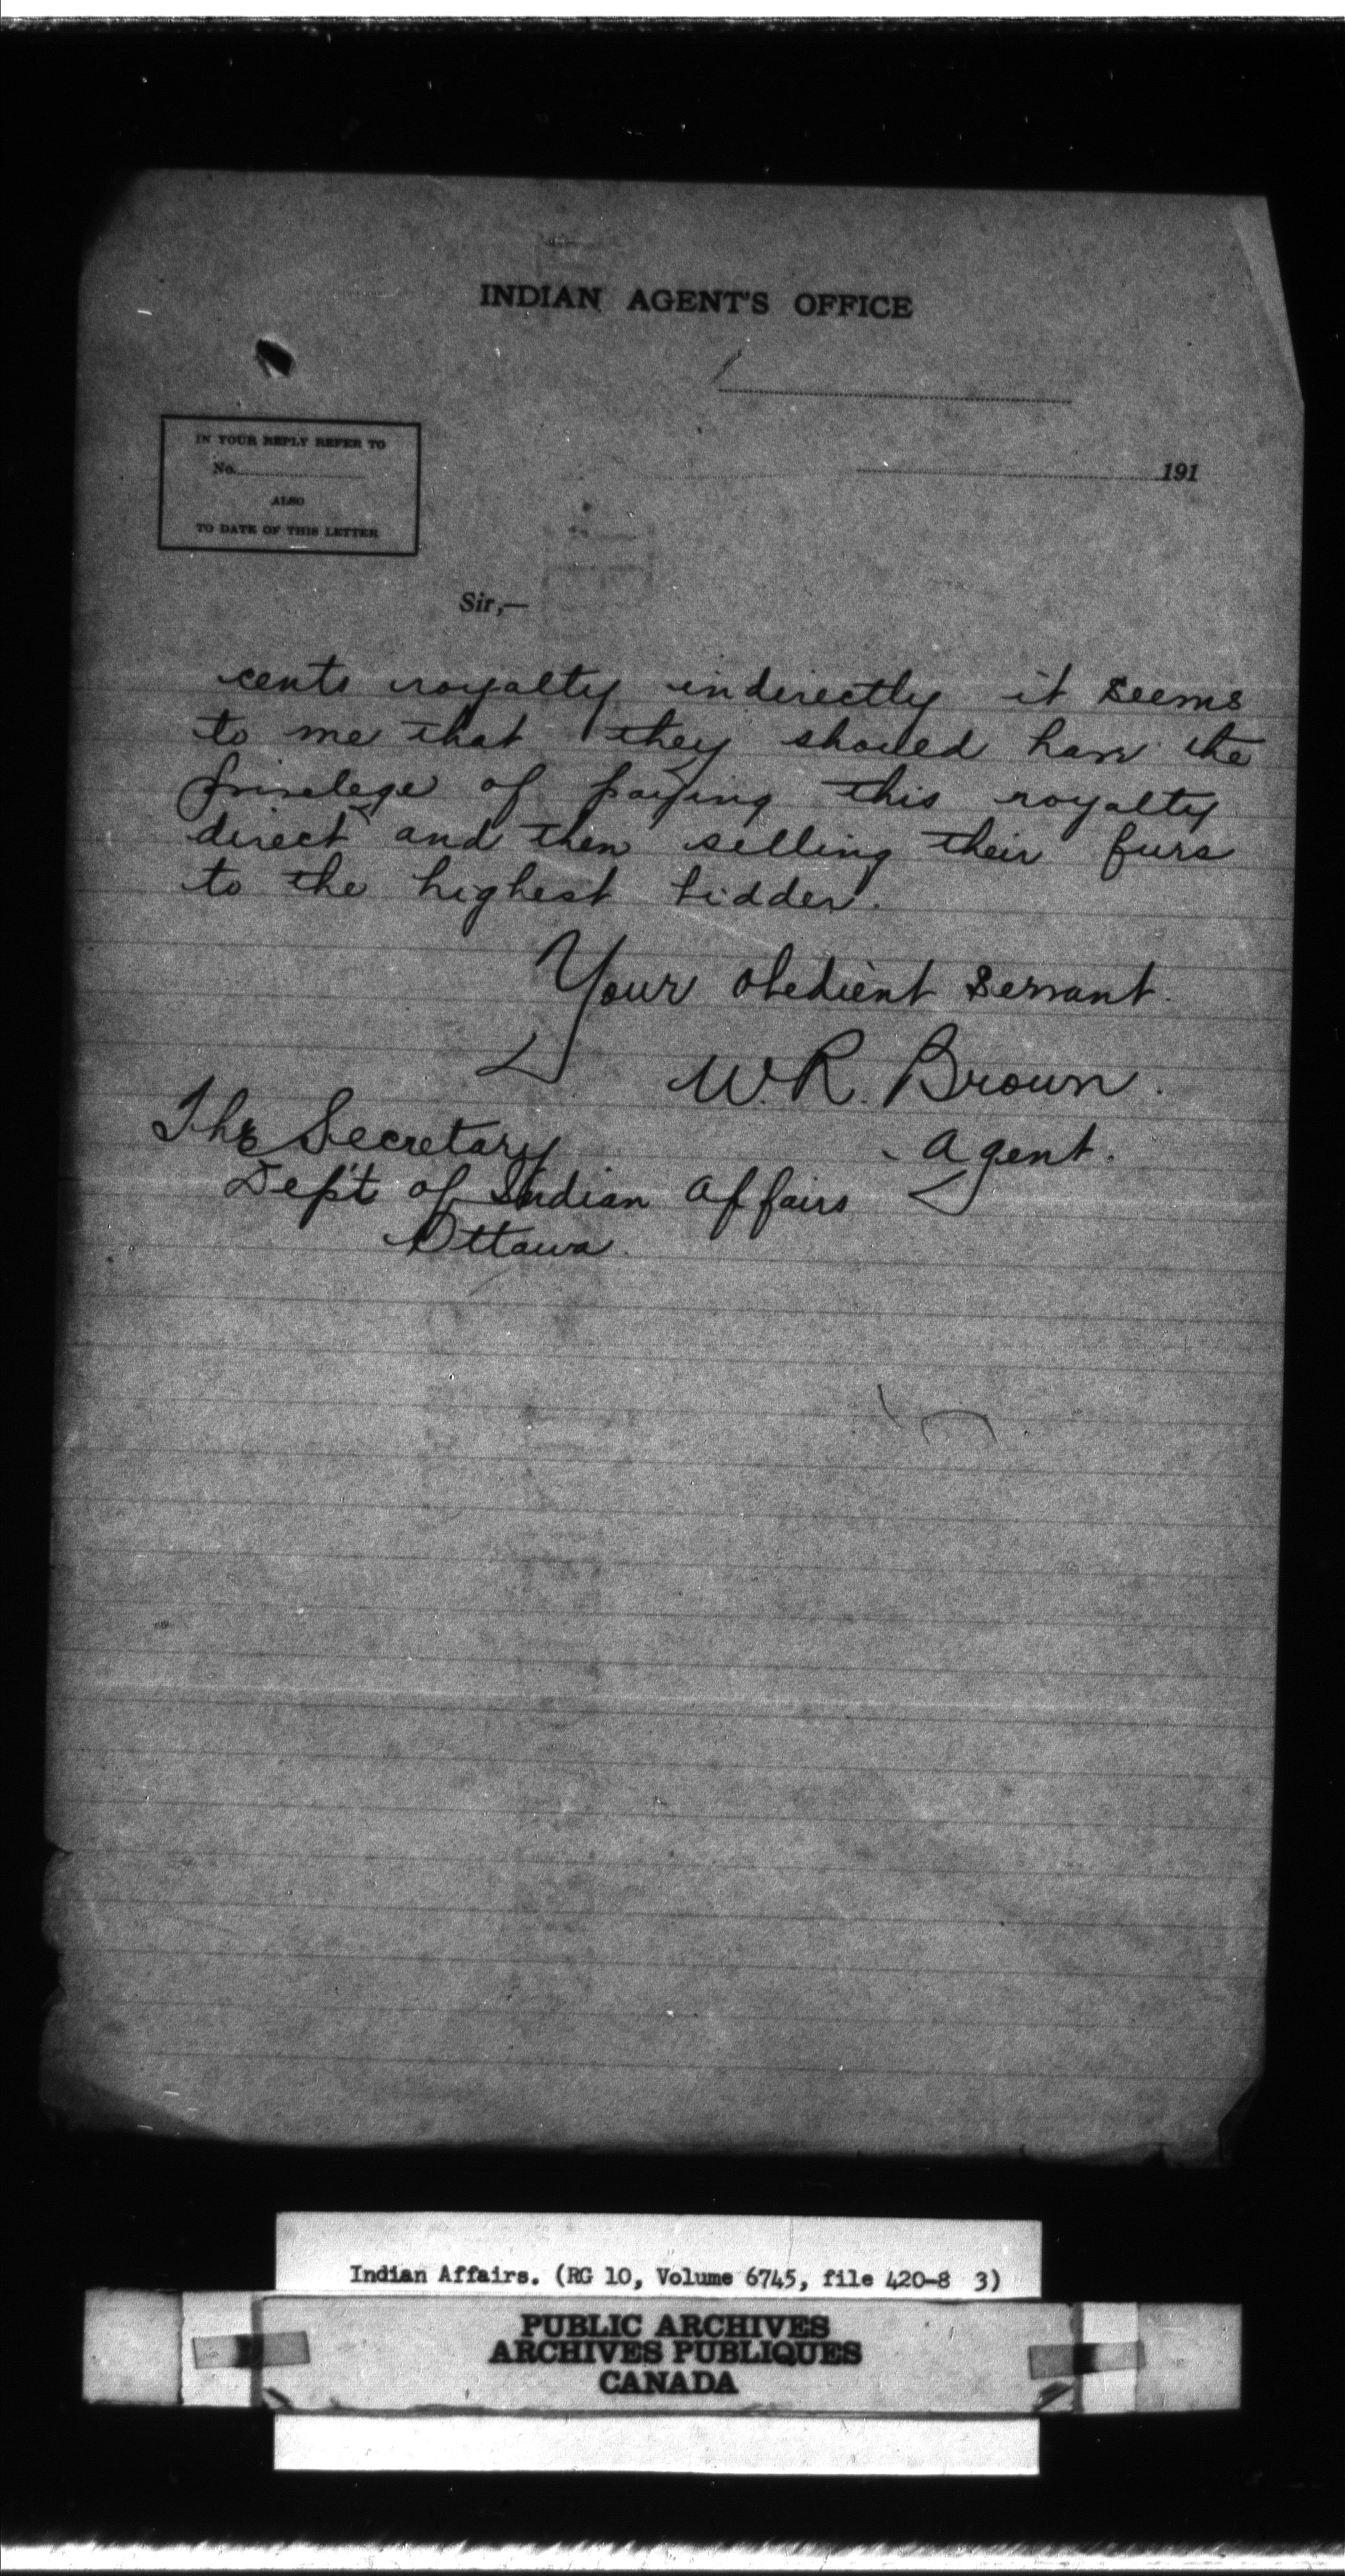 INDIAN AGENT'S OFFICE
191
IN YOUR REPLY REFER TO
No.
ALSO
TO DATE OF THIS LETTER
Sir,—
cents royalty indirectly it seems
to me that they should have the
privelege of paying this royalty
direct and then selling their furs
to the highest bidder.
Your obedient servant.
W. R. Brown.
Agent.
The Secretary
Dep't of Indian Affairs
Ottawa.
Indian Affairs. (RG 10, Volume 6745, file 420-8 3)
PUBLIC ARCHIVES
ARCHIVES PUBLIQUES
CANADA